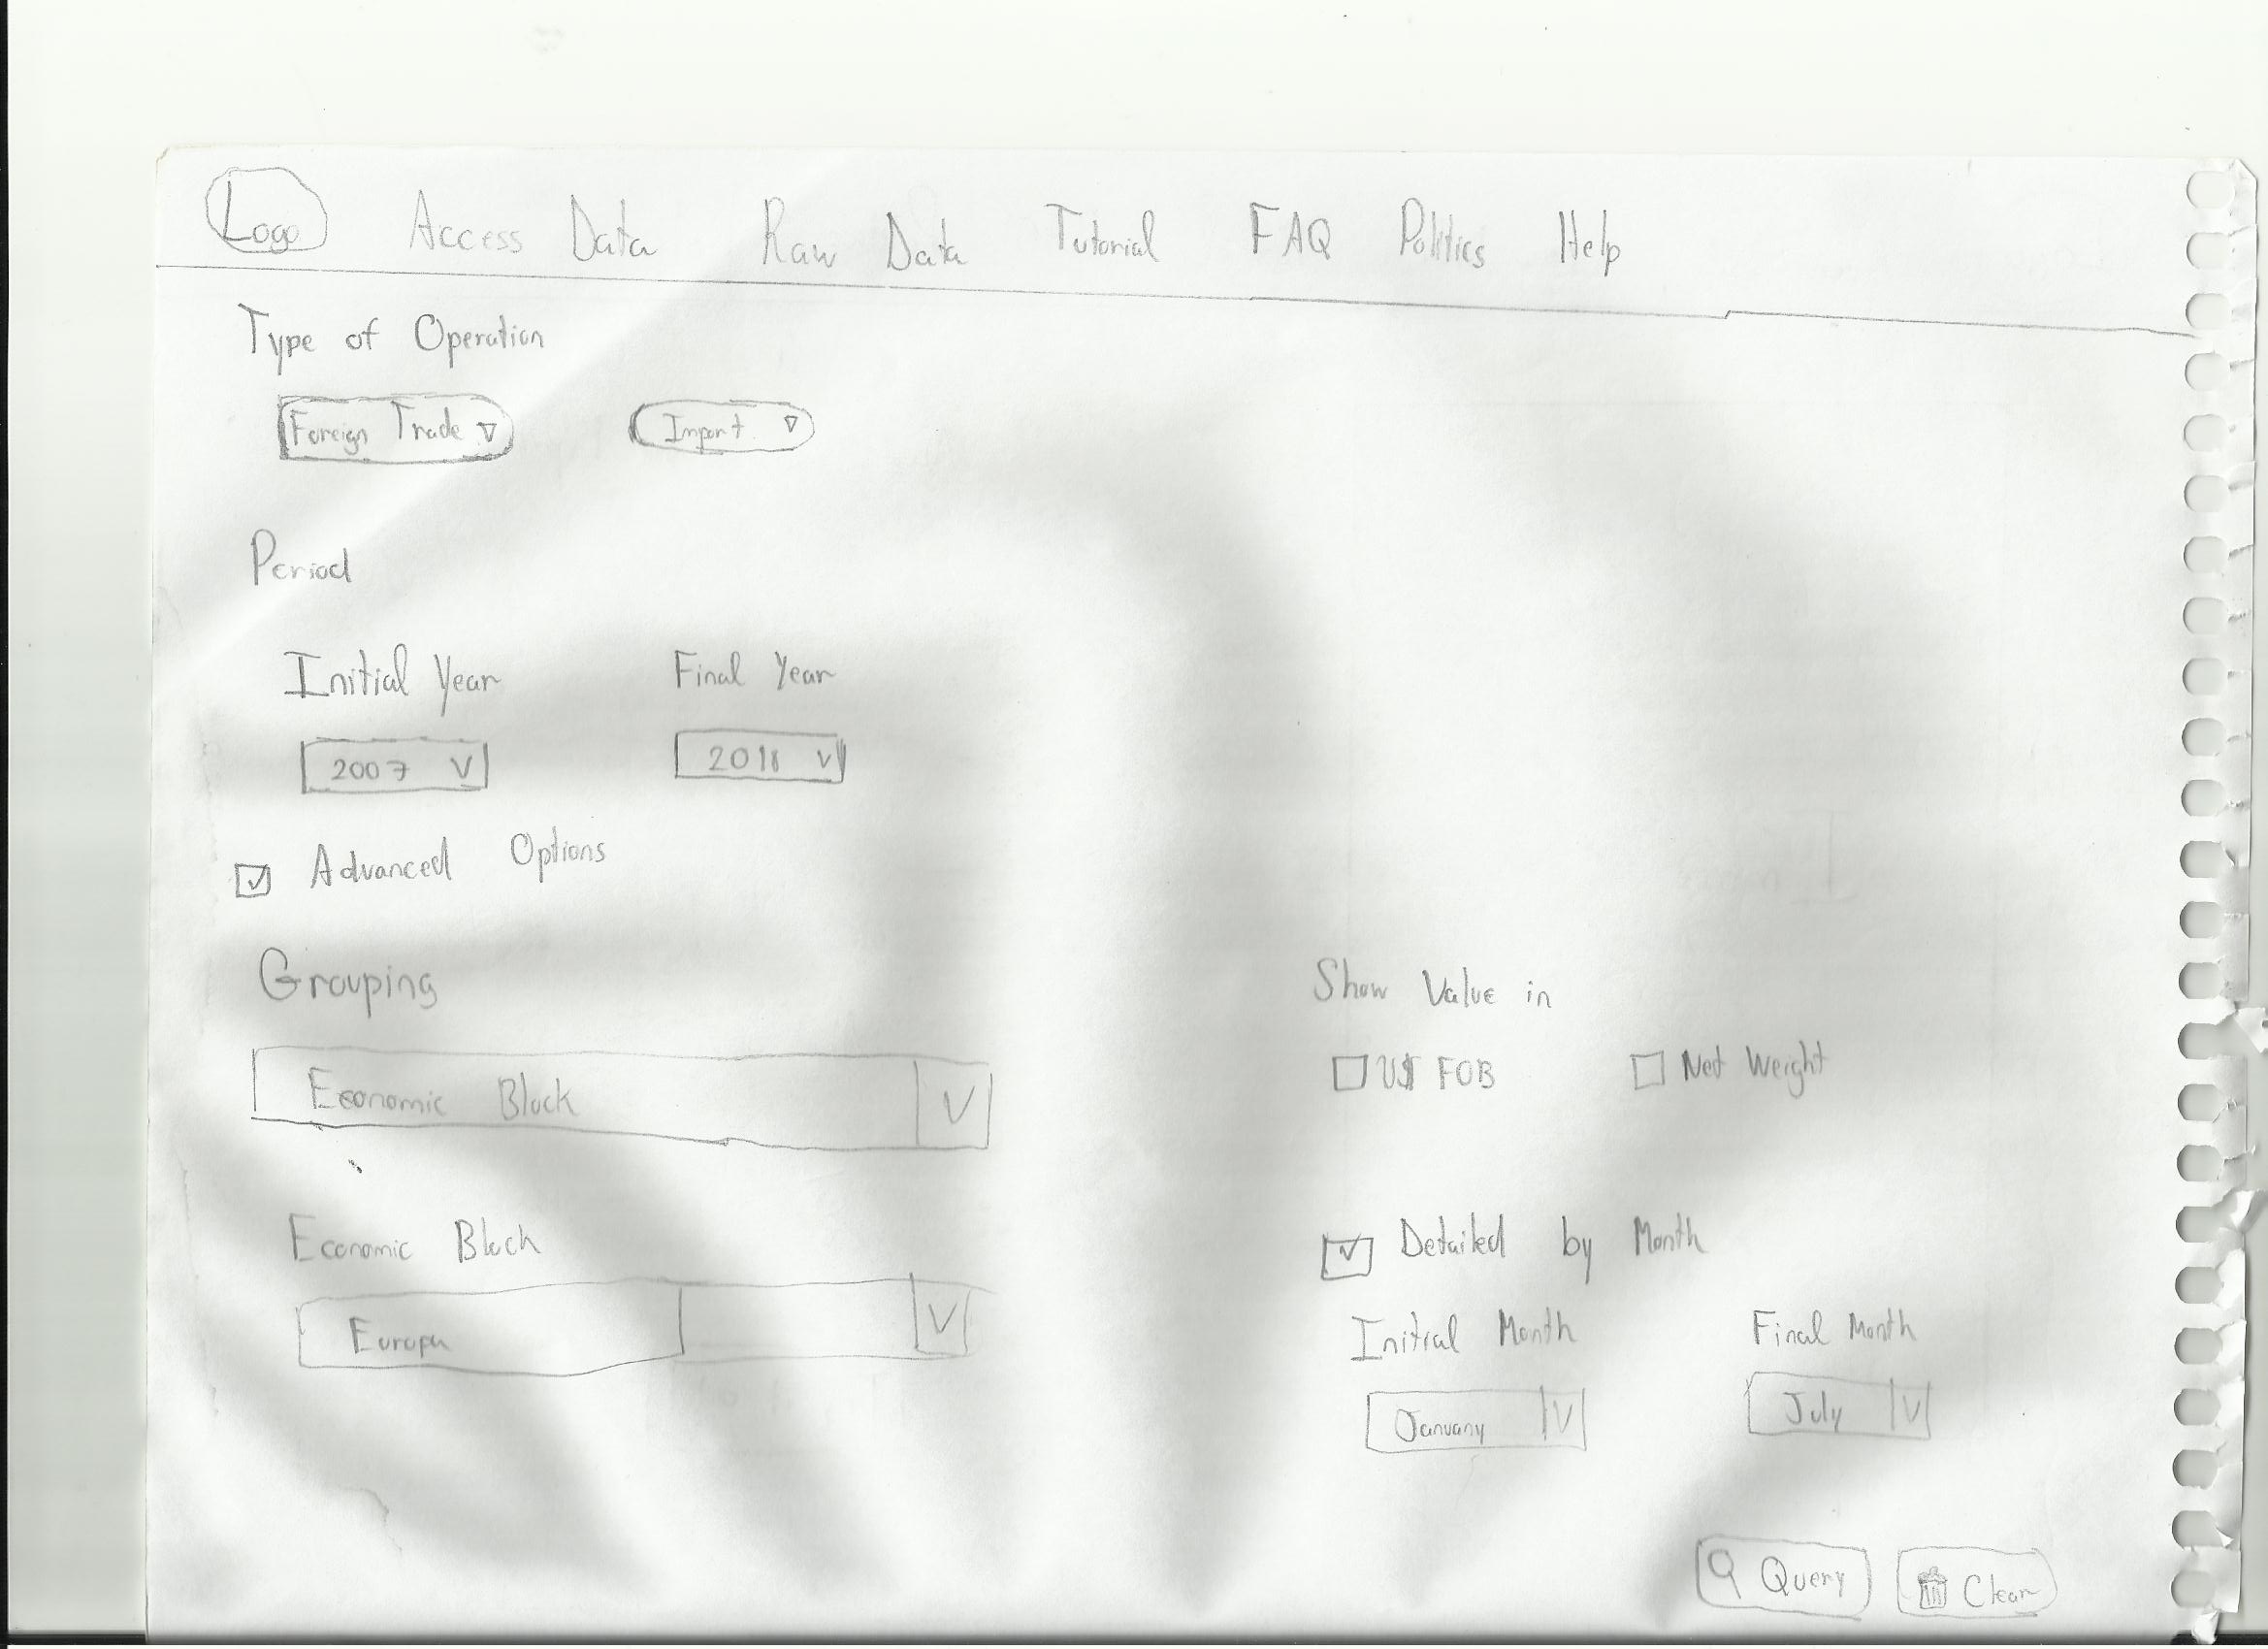 Logo Access Data Raw Data Tutorial FAQ Politics Help
Type of Operation
Foreign Trade Import
Period
Initial Year Final Year
2007 2018
Advanced Options
Grouping
Economic Block
Economic Block
Europa
Show Value in
U$ FOB Net Weight
Detailed by Month
Initial Month Final Month
January July
Query Clear